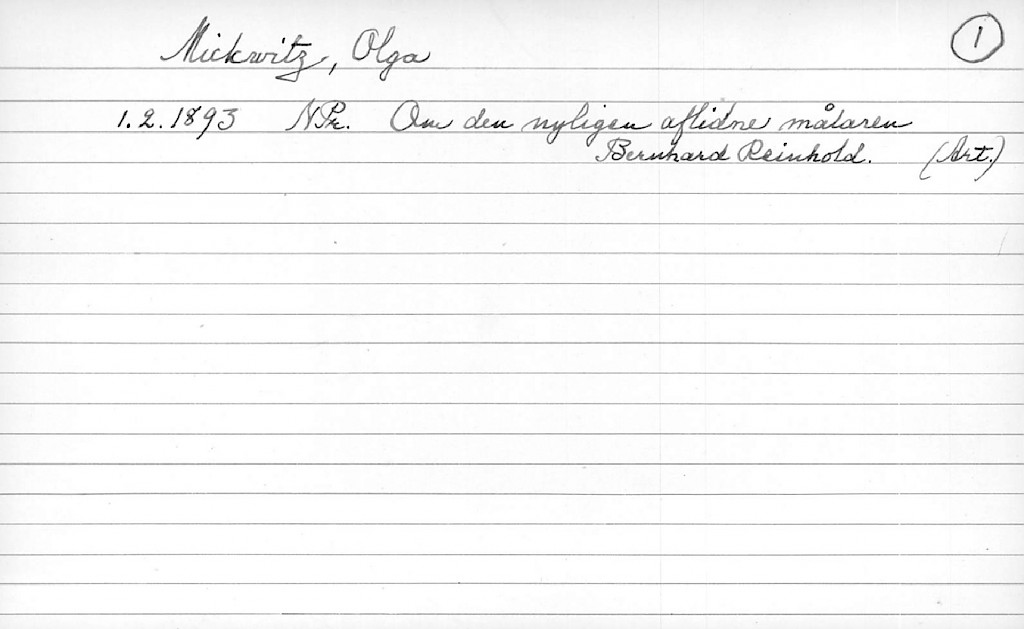 Mickwitz, Olga
1
1.2.1893 NPr. Om den nyligen aflidne målaren
Bernhard Reinhold. (Art.)